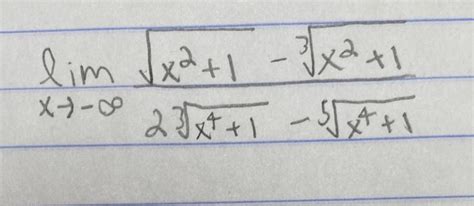 lim √(x²+1) - ∛(x²+1)
x→-∞ 2∛(x⁴+1) - ⁵√(x⁴+1)